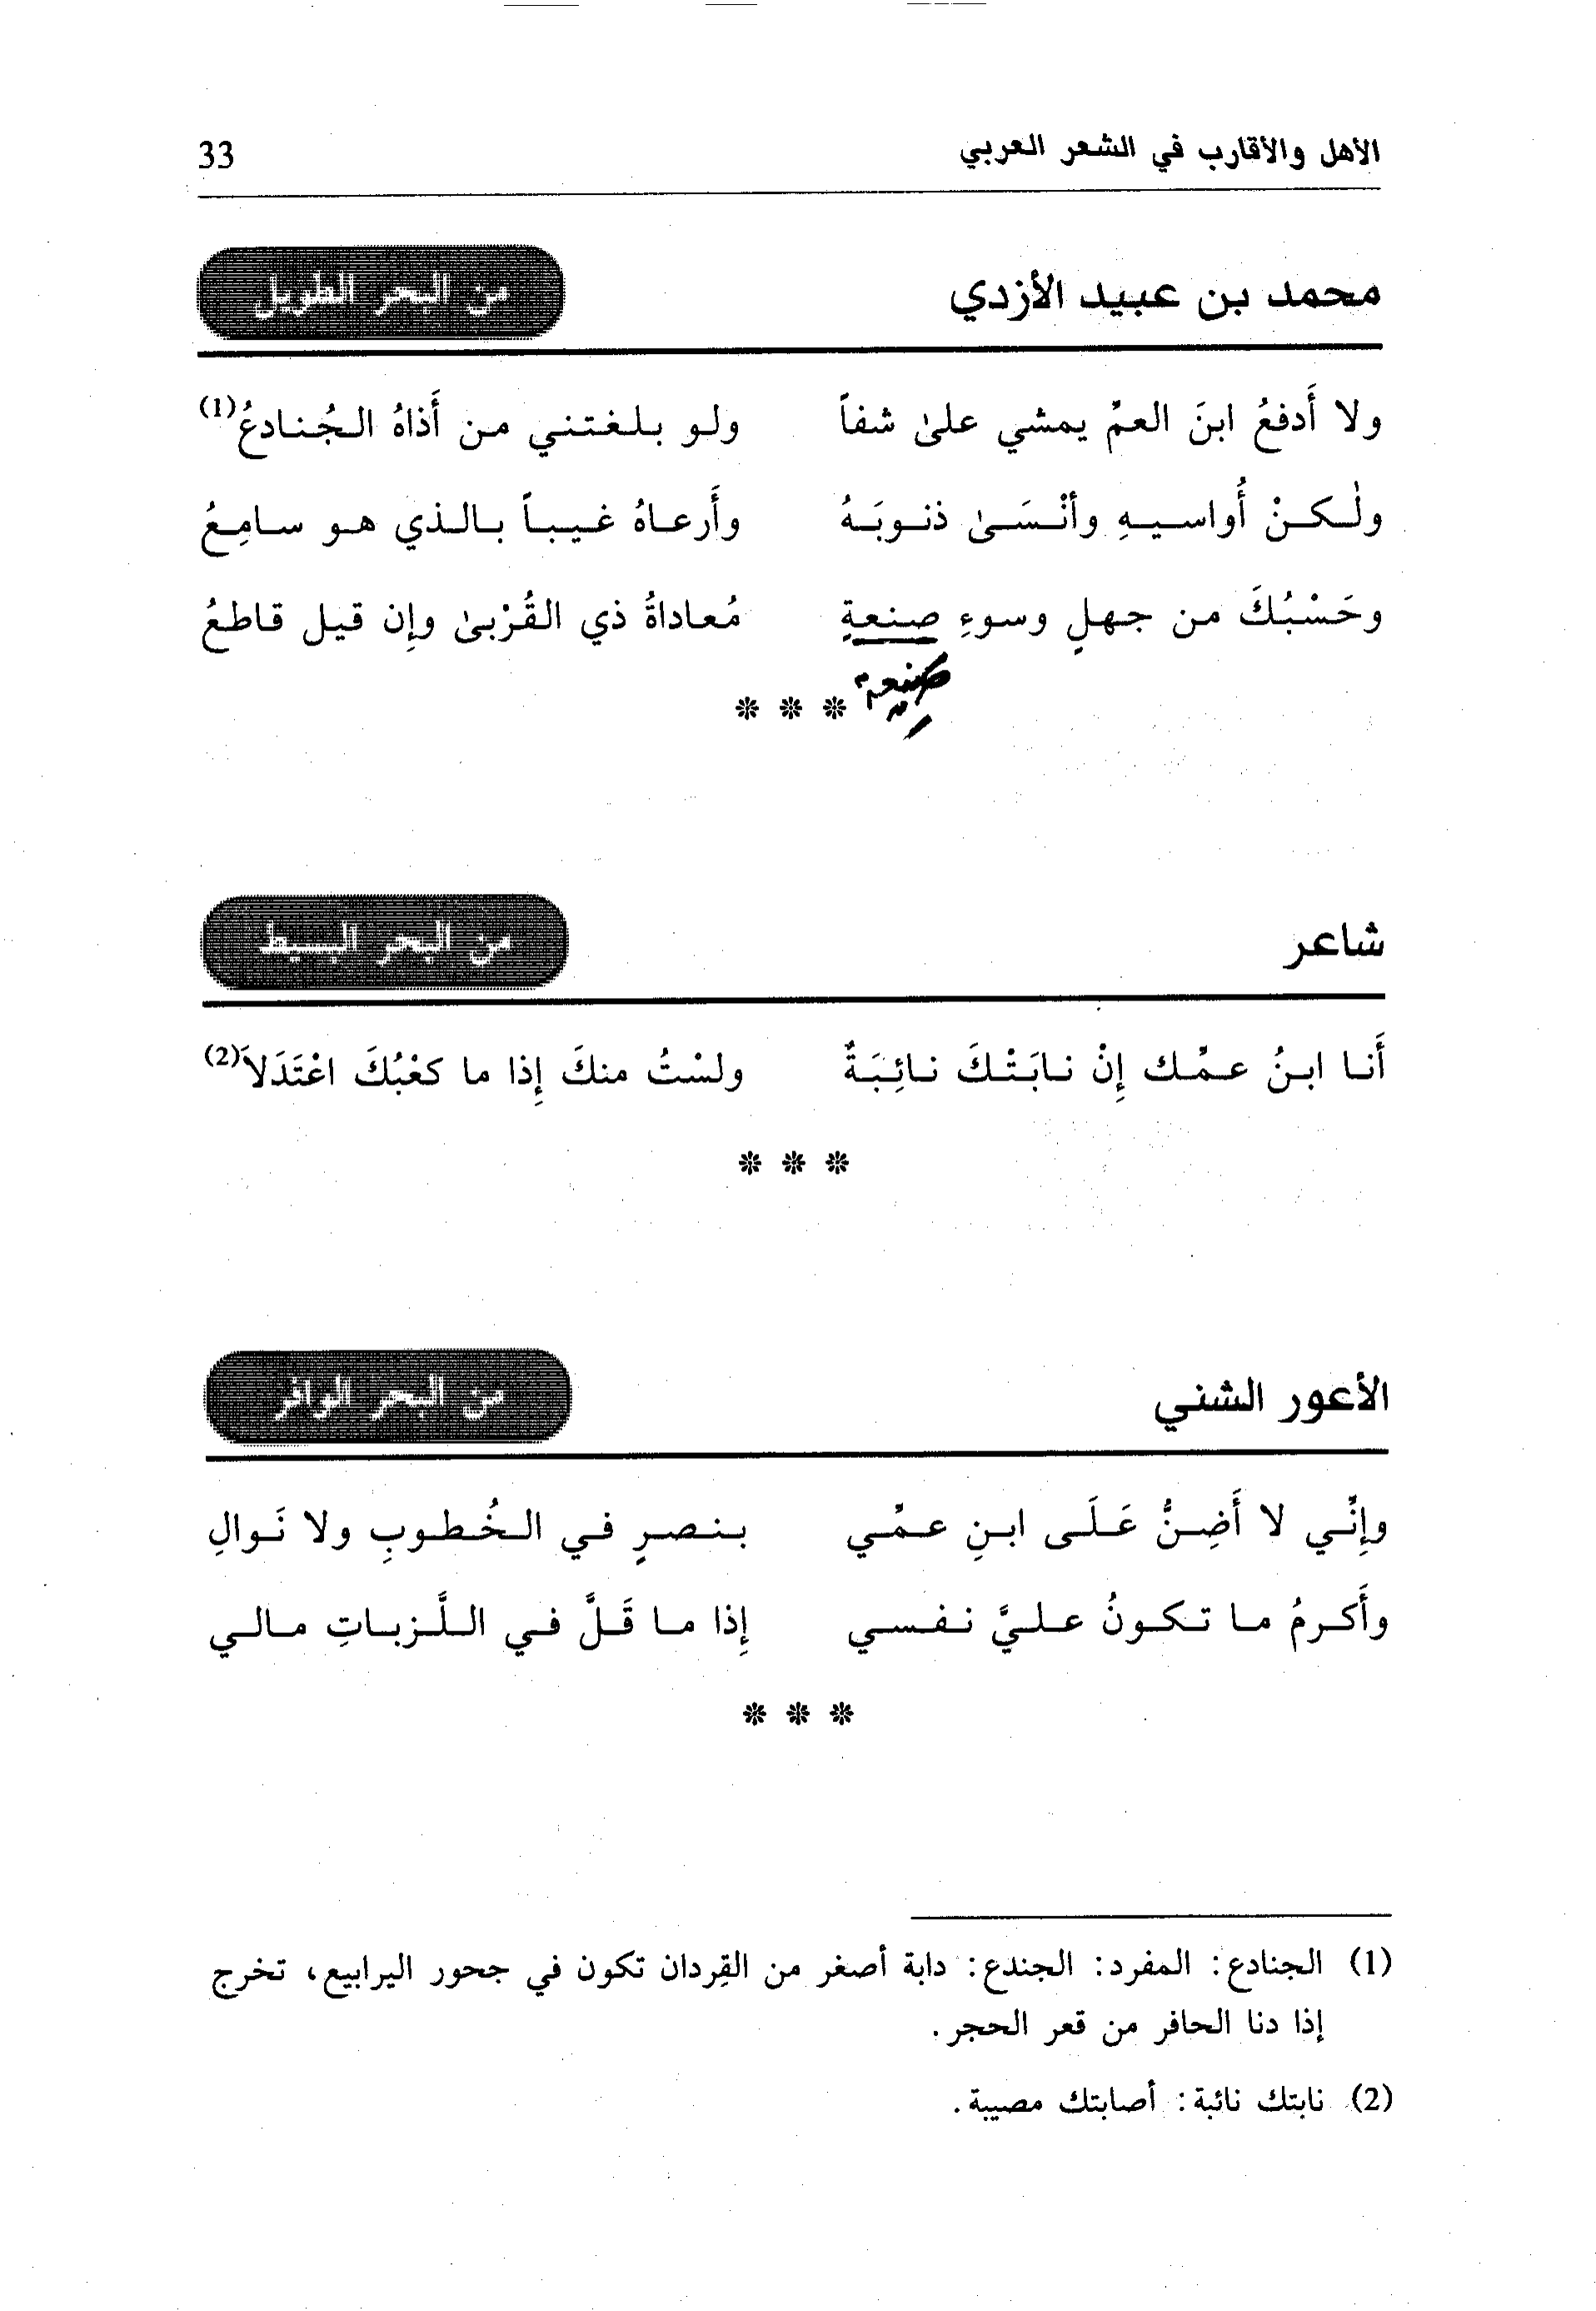 الأهل والأقارب في الشعر العربي 33
محمد بن عبيد الأزدي من البحر الطويل
ولا أَدفعُ ابنَ العمِّ يمشي علىٰ شفاً ولو بلغتني من أَذاهُ الجُنادعُ(1)
ولٰكنْ أُواسيهِ وأنْسَىٰ ذنوبَهُ وأَرعاهُ غيباً بالذي هو سامِعُ
وحَسْبُكَ من جهلٍ وسوءِ صنعةٍ مُعاداةُ ذي القُرْبىٰ وإن قيل قاطعُ
صنيعة
* * *
شاعر من البحر البسيط
أَنا ابنُ عمِّك إِنْ نابَتْكَ نائِبَةٌ ولسْتُ منكَ إِذا ما كعْبُكَ اعْتَدَلاَ(2)
* * *
الأعور الشني من البحر الوافر
وإِنِّي لا أَضِنُّ عَلَى ابنِ عمِّي بنصرٍ في الخُطوبِ ولا نَوالِ
وأَكرمُ ما تكونُ عليَّ نفسي إِذا ما قَلَّ في اللَّزباتِ مالي
* * *
(1) الجنادع: المفرد: الجندع: دابة أصغر من القِردان تكون في جحور اليرابيع، تخرج
إذا دنا الحافر من قعر الحجر.
(2) نابتك نائبة: أصابتك مصيبة.